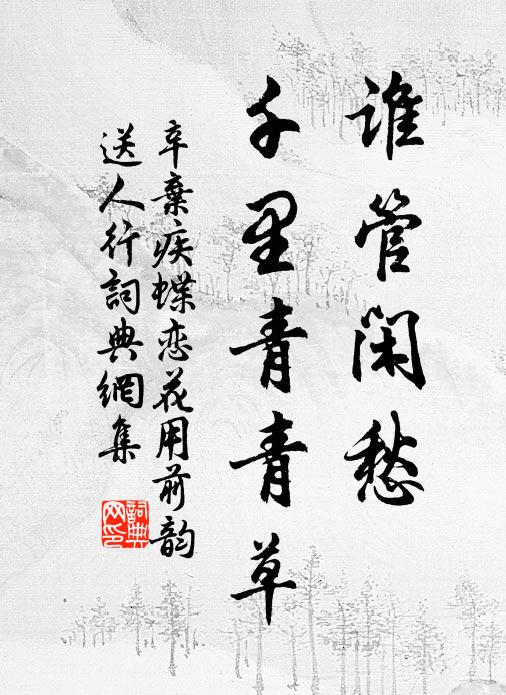 谁管闲愁
千里青青草
辛棄疾蝶恋花用前韵
送人行詞典網集
詞典
网印